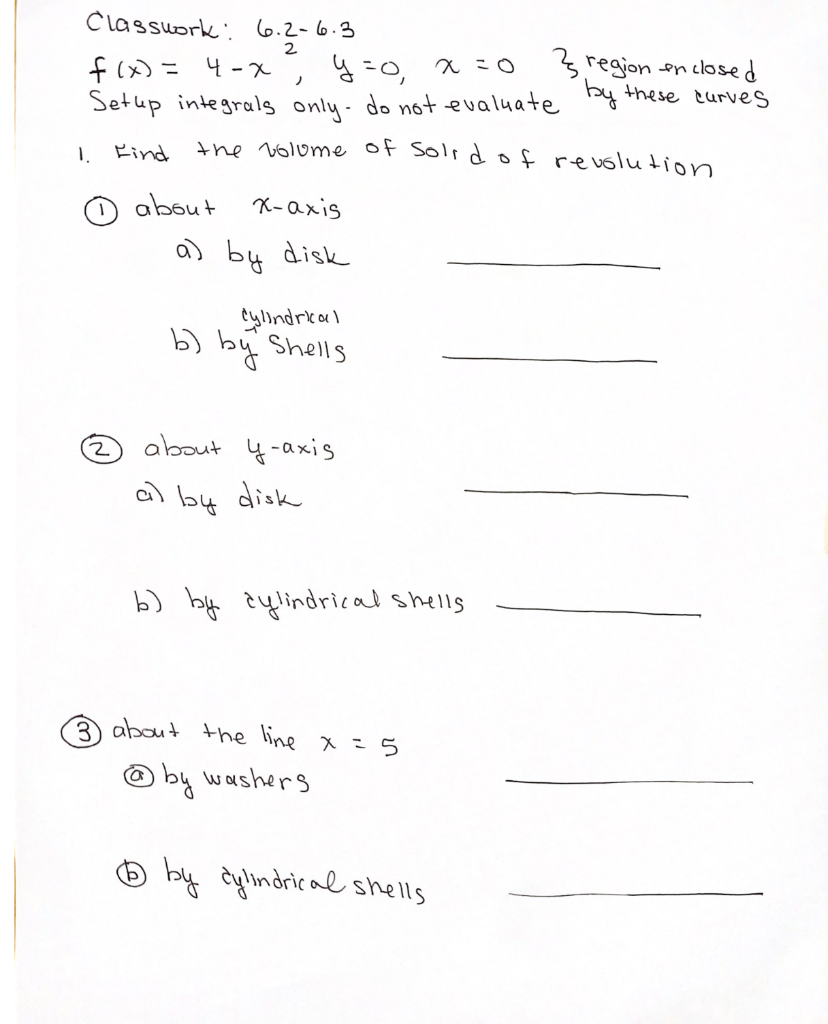 Classwork: 6.2-6.3
f(x) = 4-x², y=0, x=0 } region enclosed
by these curves
Setup integrals only - do not evaluate
1. Find the volume of solid of revolution
① about x-axis
a) by disk
cylindrical
b) by shells
② about y-axis
a) by disk
b) by cylindrical shells
③ about the line x = 5
ⓐ by washers
ⓑ by cylindrical shells